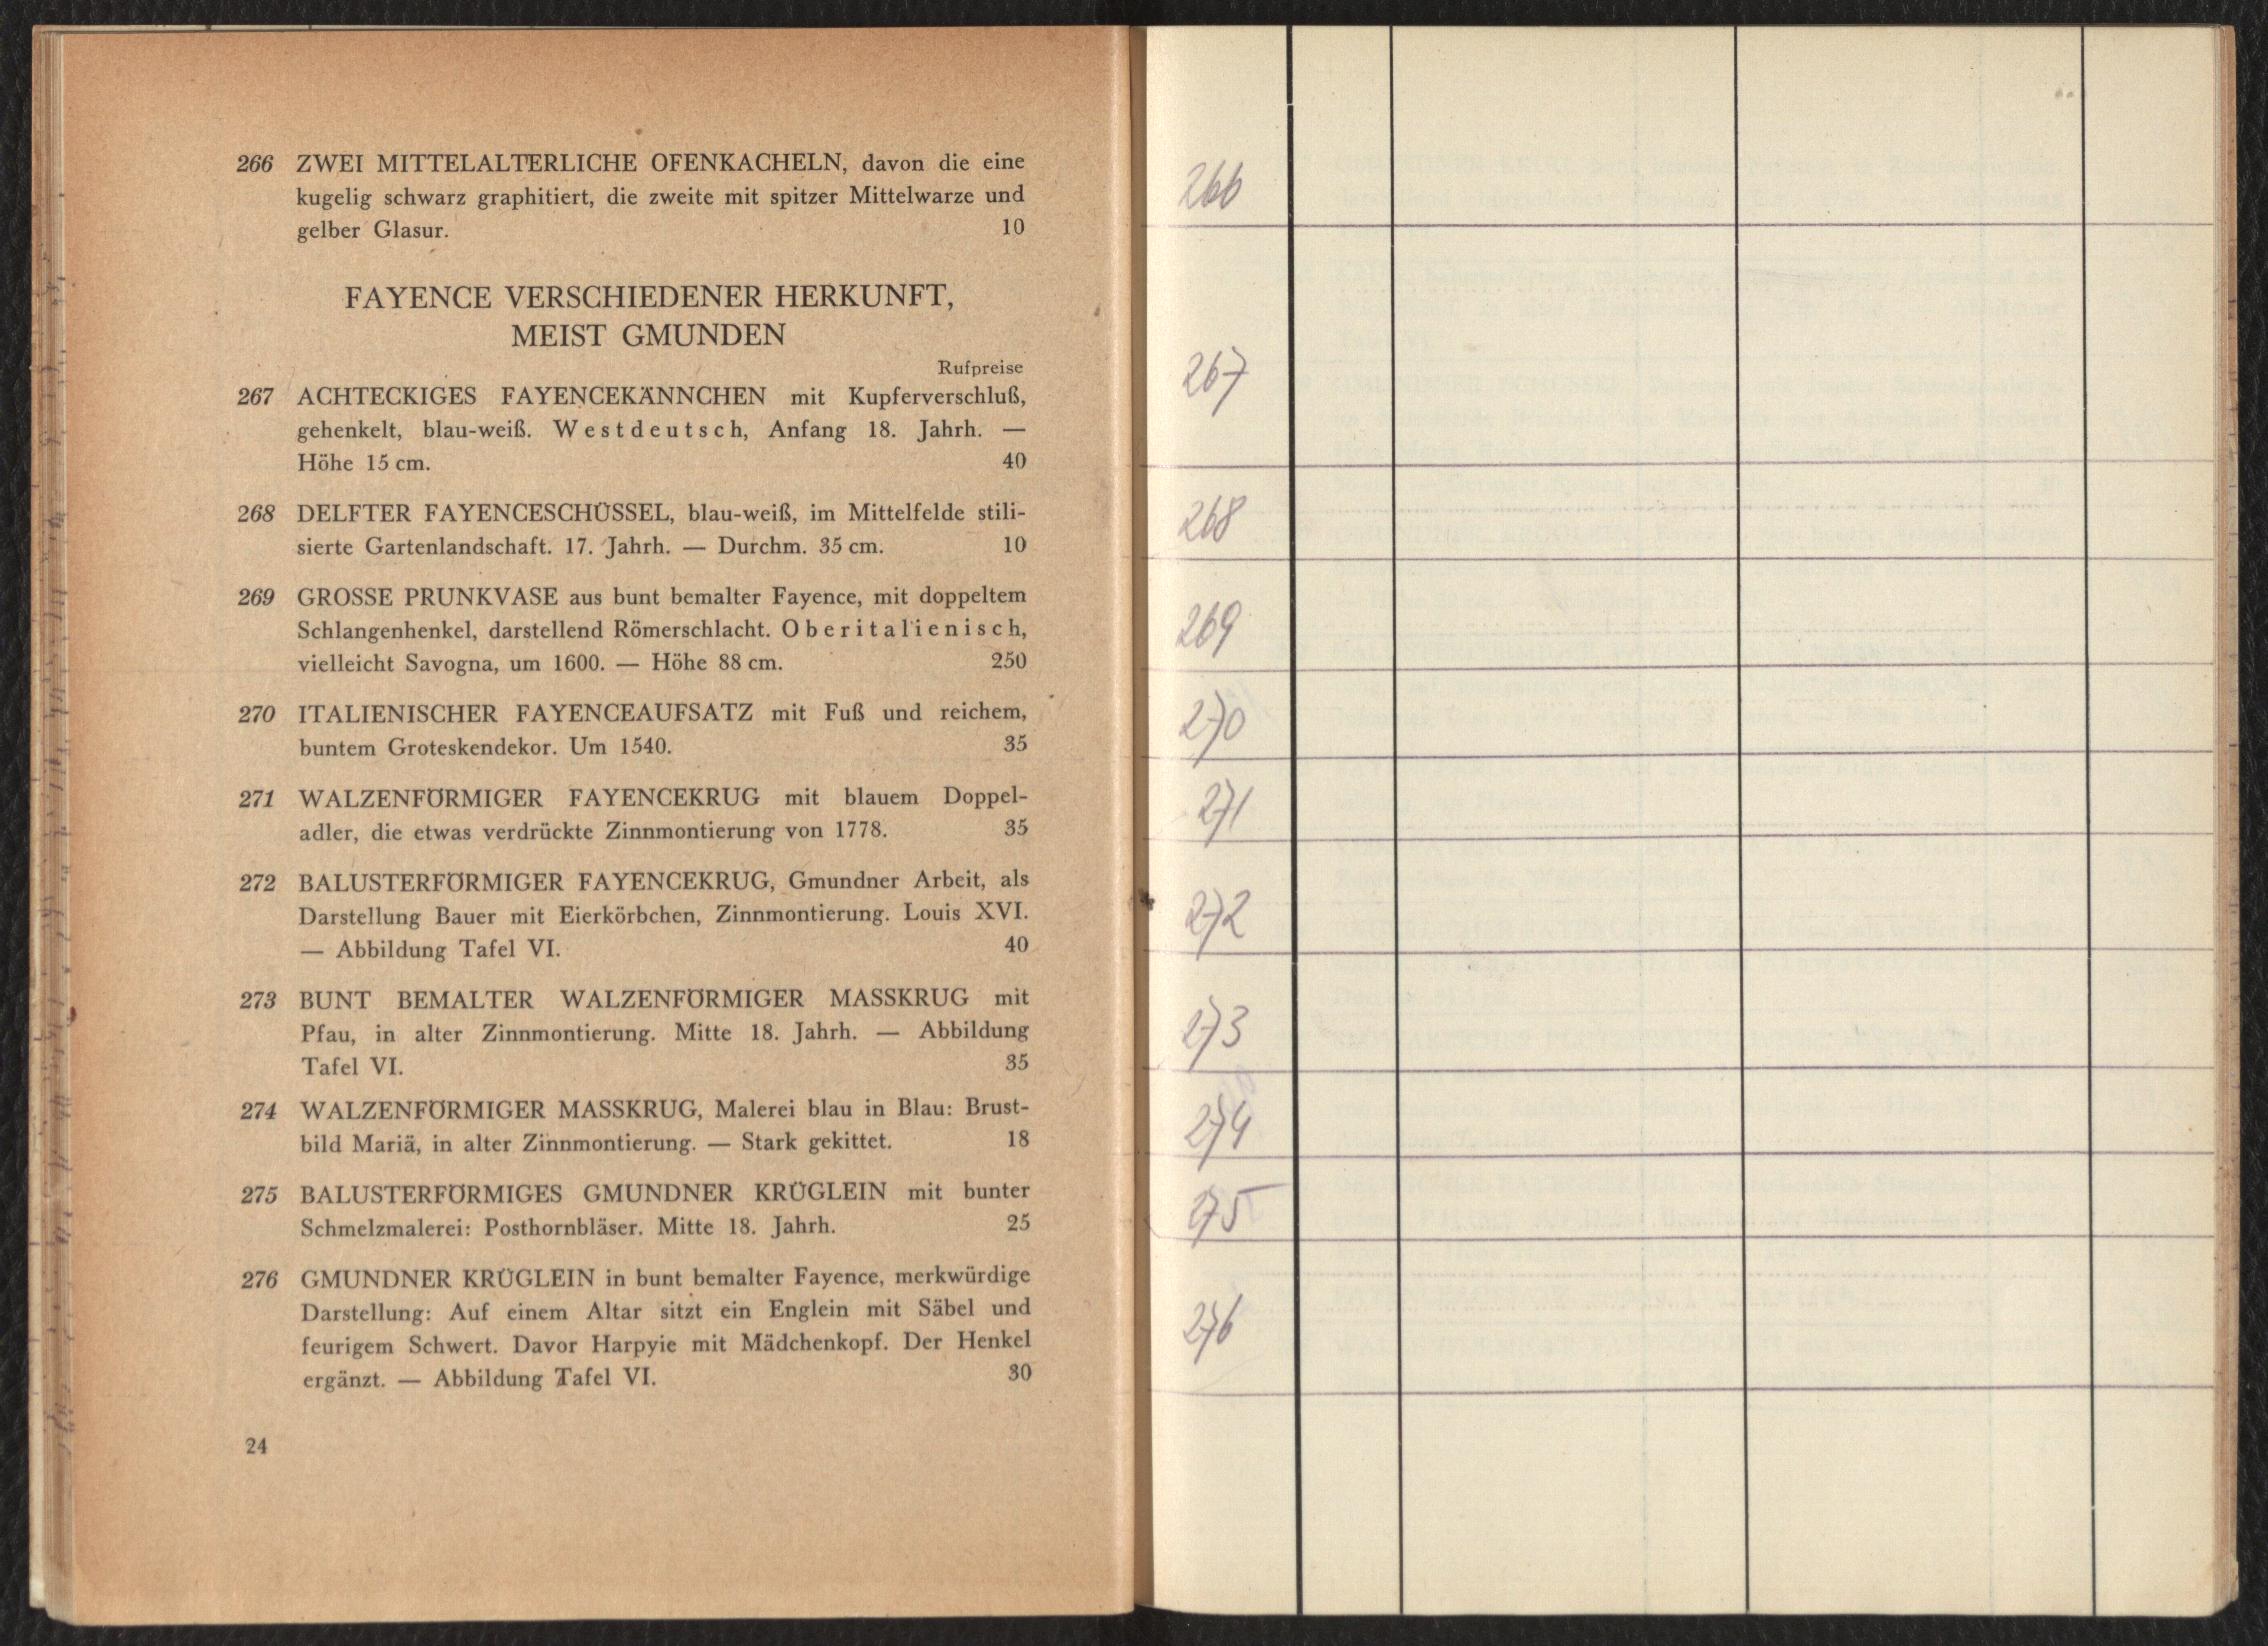 266 ZWEI MITTELALTERLICHE OFENKACHELN, davon die eine
kugelig schwarz graphitiert, die zweite mit spitzer Mittelwarze und
gelber Glasur. 10
FAYENCE VERSCHIEDENER HERKUNFT,
MEIST GMUNDEN
Rufpreise
267 ACHTECKIGES FAYENCEKÄNNCHEN mit Kupferverschluß,
gehenkelt, blau-weiß. Westdeutsch, Anfang 18. Jahrh. —
Höhe 15 cm. 40
268 DELFTER FAYENCESCHÜSSEL, blau-weiß, im Mittelfelde stili-
sierte Gartenlandschaft. 17. Jahrh. — Durchm. 35 cm. 10
269 GROSSE PRUNKVASE aus bunt bemalter Fayence, mit doppeltem
Schlangenhenkel, darstellend Römerschlacht. Oberitalienisch,
vielleicht Savogna, um 1600. — Höhe 88 cm. 250
270 ITALIENISCHER FAYENCEAUFSATZ mit Fuß und reichem,
buntem Groteskendekor. Um 1540. 35
271 WALZENFÖRMIGER FAYENCEKRUG mit blauem Doppel-
adler, die etwas verdrückte Zinnmontierung von 1778. 35
272 BALUSTERFÖRMIGER FAYENCEKRUG, Gmundner Arbeit, als
Darstellung Bauer mit Eierkörbchen, Zinnmontierung. Louis XVI.
— Abbildung Tafel VI. 40
273 BUNT BEMALTER WALZENFÖRMIGER MASSKRUG mit
Pfau, in alter Zinnmontierung. Mitte 18. Jahrh. — Abbildung
Tafel VI. 35
274 WALZENFÖRMIGER MASSKRUG, Malerei blau in Blau: Brust-
bild Mariä, in alter Zinnmontierung. — Stark gekittet. 18
275 BALUSTERFÖRMIGES GMUNDNER KRÜGLEIN mit bunter
Schmelzmalerei: Posthornbläser. Mitte 18. Jahrh. 25
276 GMUNDNER KRÜGLEIN in bunt bemalter Fayence, merkwürdige
Darstellung: Auf einem Altar sitzt ein Englein mit Säbel und
feurigem Schwert. Davor Harpyie mit Mädchenkopf. Der Henkel
ergänzt. — Abbildung Tafel VI. 30
24
266
267
268
269
270
271
272
273
274
275
276